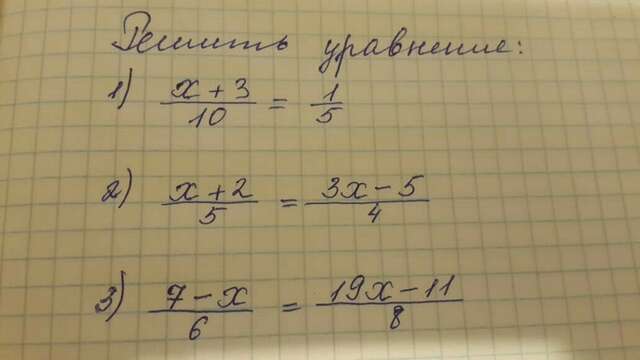 Решить уравнение:
1) (x + 3)/10 = 1/5
2) (x + 2)/5 = (3x - 5)/4
3) (7 - x)/6 = (19x - 11)/8